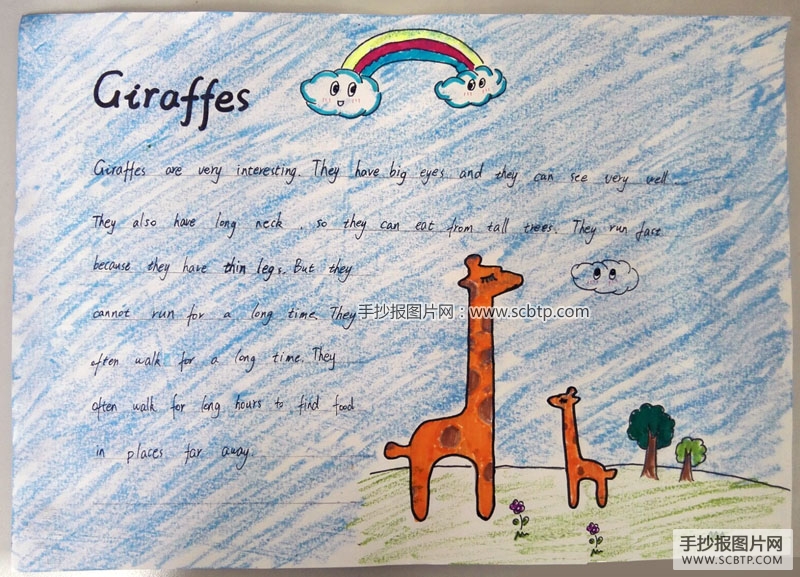 Giraffes
Giraffes are very interesting. They have big eyes and they can see very well
They also have long neck , so they can eat from tall trees. They run fast
because they have thin legs. But they
cannot run for a long time. They
手抄报图片网:www.scbtp.com
often walk for a long time. They
often walk for long hours to find food
in places far away.
手抄报图片网
WWW.SCBTP.COM